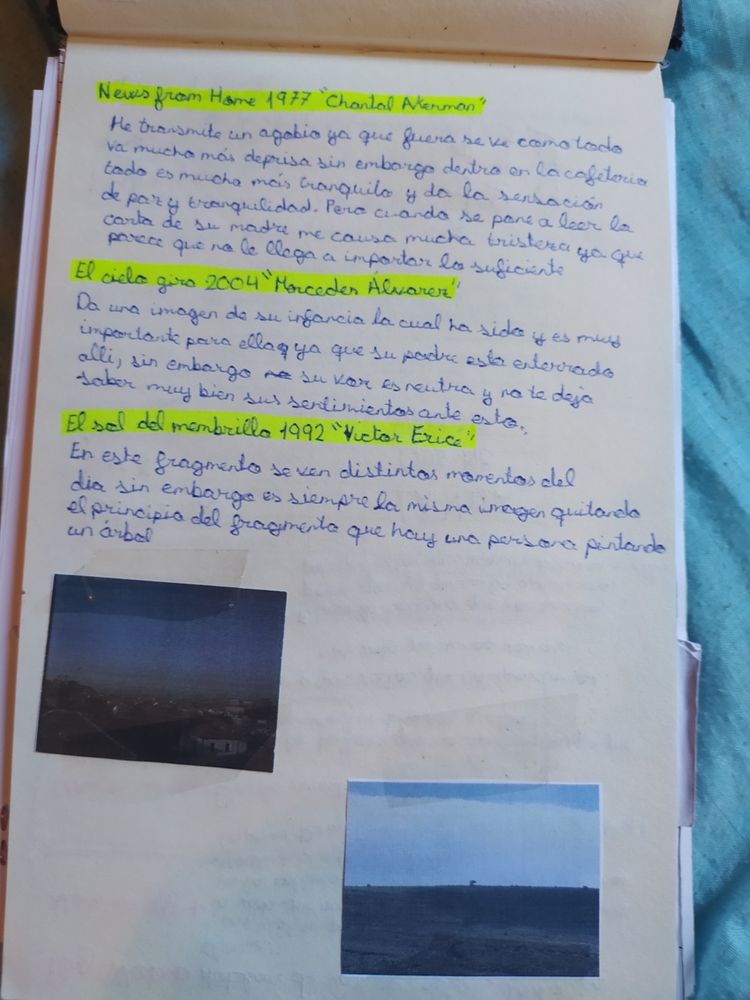 News from Home 1977 "Chantal Akerman"
Me transmite un agobio ya que fuera se ve como todo
va mucho más deprisa sin embargo dentro en la cafeteria
todo es mucho más tranquilo y da la sensación
de paz y tranquilidad. Pero cuando se pone a leer la
carta de su madre me causa mucha tristeza ya que
parece que no le llega a importar lo suficiente
El cielo gira 2004 "Mercedes Álvarez"
Da una imagen de su infancia la cual ha sido y es muy
importante para ella ya que su padre esta enterrado
alli, sin embargo su voz es neutra y no te deja
saber muy bien sus sentimientos ante esto.
El sol del membrillo 1992 "Victor Erice"
En este fragmento se ven distintos momentos del
dia sin embargo es siempre la misma imagen quitando
el principio del fragmento que hay una persona pintando
un árbol